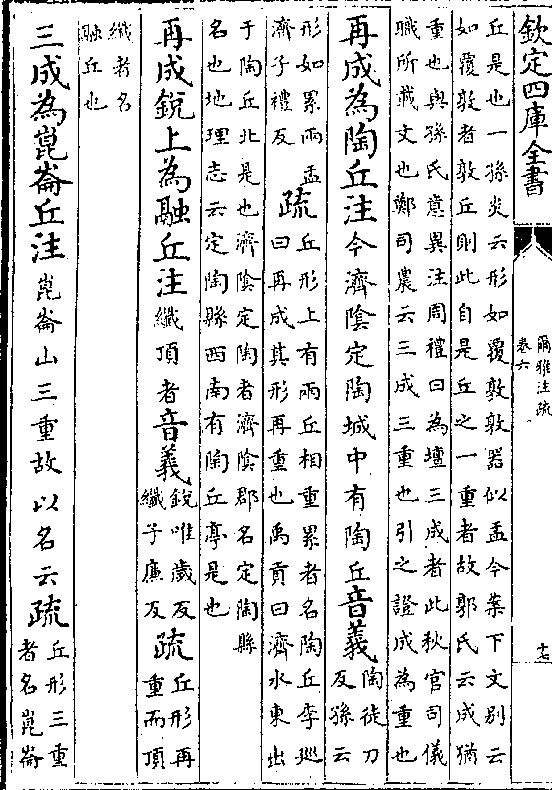 欽定四庫全書
爾雅注疏
卷六
十七
丘是也一孫炎云形如覆敦敦器似盂今案下文别云
如覆敦者敦丘則此自是丘之一重者故郭氏云成猶
重也與孫氏意異注周禮曰為壇三成者此秋官司儀
職所載文也鄭司農云三成三重也引之證成為重也
再成為陶丘注今濟隂定陶城中有陶丘音義陶徒刀
反孫云
形如累兩盂
濟子禮反
疏丘形上有兩丘相重累者名陶丘李廵
曰再成其形再重也禹貢曰濟水東出
于陶丘北是也濟隂定陶者濟隂郡名定陶縣
名也地理志云定陶縣西南有陶丘亭是也
再成銳上為融丘注纖頂者音義銳唯歲反
纖子廉反
疏丘形再
重而頂
纖者名
融丘也
三成為崑崙丘注崑崙山三重故以名云疏丘形三重
者名崑崙